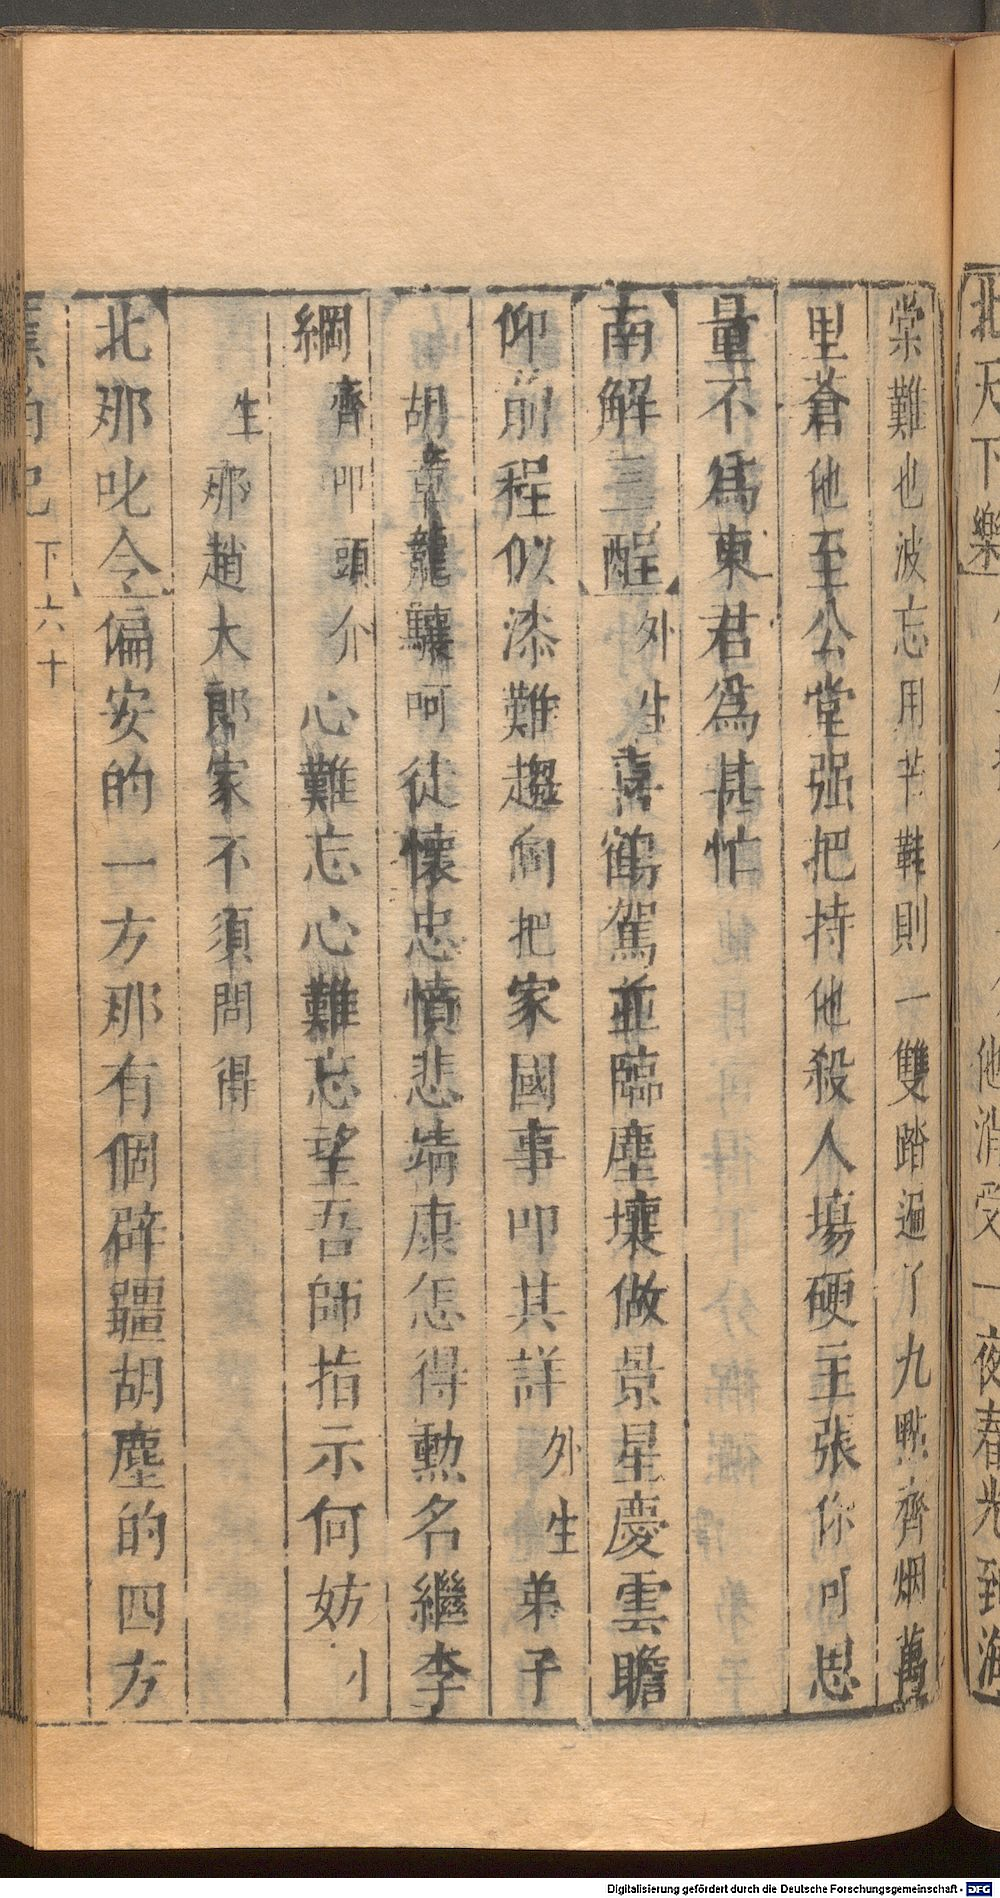 北天下樂 他消受一夜春光到海
棠難也波忘用芒鞋則一雙踏遍了九點齊烟萬
里蒼他至公堂强把持他殺人場硬主張你可思
量不爲東君爲甚忙
南解三酲外生喜鶴駕並臨塵壤做景星慶雲瞻
仰前程似漆難趨向把家國事叩其詳外生弟子
胡章龍驤呵徒懷忠憤悲靖康怎得勳名繼李
綱齊叩頭介心難忘心難忘望吾師指示何妨小
生那趙大郎家不須問得
北那吒令偏安的一方那有個辟疆胡塵的四方
蕉帕記 下六十
Digitalisierung gefördert durch die Deutsche Forschungsgemeinschaft - DFG